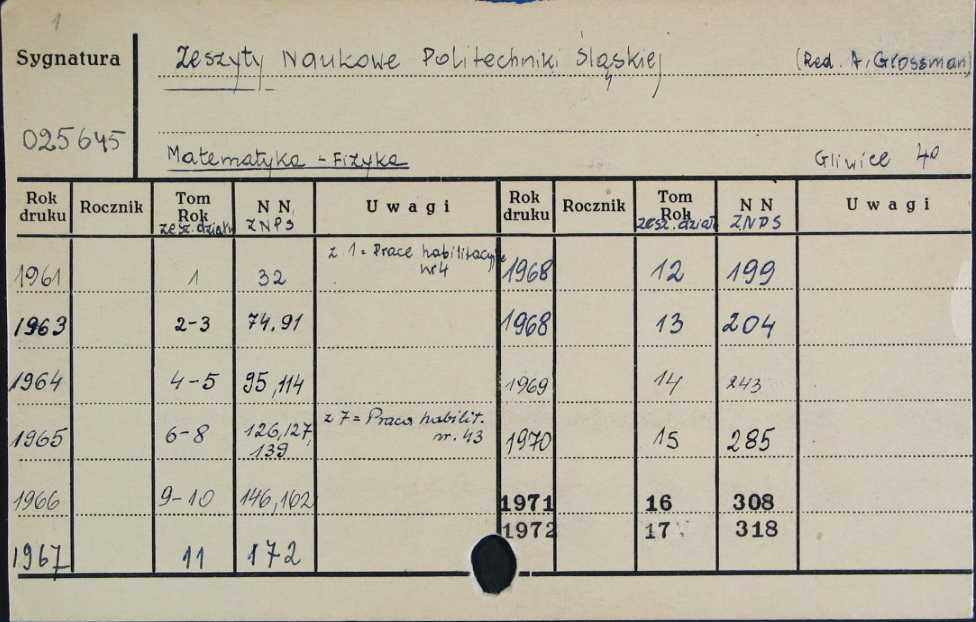 1
Sygnatura
Zeszyty Naukowe Politechniki Śląskiej (Red. A. Grossman)
025645
Matematyka - Fizyka Gliwice 40
Rok druku Rocznik Tom Rok zesz. dział. N N ZNPS Uwagi Rok druku Rocznik Tom Rok zesz. dział. N N ZNPS Uwagi
1961 1 32 z 1 = Prace habilitacyjne nr 4 1968 12 199
1963 2-3 74.91 1968 13 204
1964 4-5 95,114 1969 14 243
1965 6-8 126,127,139 z 7 = Praca habilit. nr. 43 1970 15 285
1966 9-10 146,162 1971 16 308
1972 17 318
1967 11 172